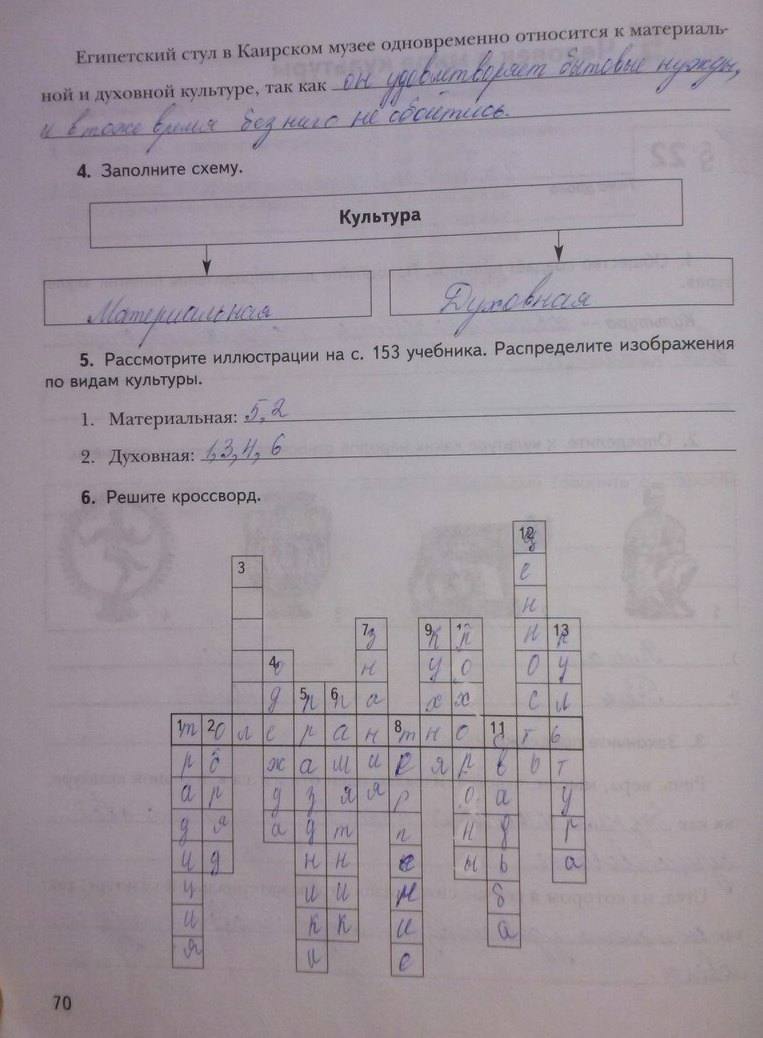 Египетский стул в Каирском музее одновременно относится к материаль-
ной и духовной культуре, так как он удовлетворяет бытовые нужды,
и в тоже время без него не обойтись.
4. Заполните схему.
Культура
Материальная
Духовная
5. Рассмотрите иллюстрации на с. 153 учебника. Распределите изображения
по видам культуры.
1. Материальная: 5, 2
2. Духовная: 1, 3, 4, 6
6. Решите кроссворд.
12 ц
3 е
н
7 з 9 к п н 13 к
4 о н у о о у
д 5 п 6 п а х х с л
1 т 2 о л е р а н 8 т н о 11 с т ь
р б ж а м и е я р в ь т
а р д з я я р о а у
д я а д т п н д р
и д н н е ы ь а
ц и и н б
и к к и а
я и е
70